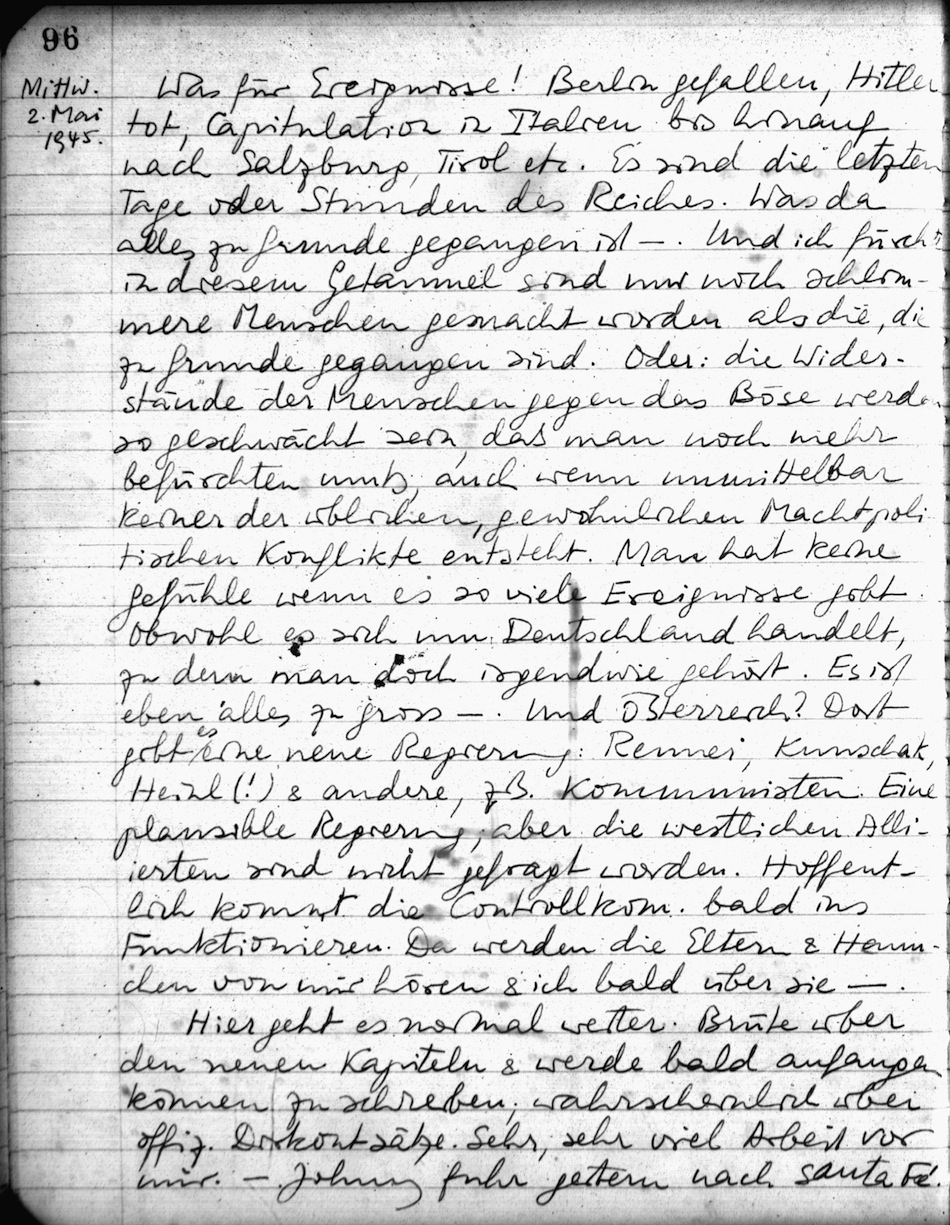 96
Mittw.
2. Mai
1945.
Was für Ereignisse! Berlin gefallen, Hitler
tot, Capitulation in Italien bis hinauf
nach Salzburg, Tirol etc. Es sind die letzten
Tage oder Stunden des Reiches. Was da
alles zu Grunde gegangen ist —. Und ich fürcht
in diesem Getümmel sind nur noch schlim-
mere Menschen gemacht worden als die, die
zu Grunde gegangen sind. Oder: die Wider-
stände der Menschen gegen das Böse werden
so geschwächt sein, das man noch mehr
befürchten muß, auch wenn unmittelbar
keiner der üblichen, gewöhnlichen Machtpoli
tischen Konflikte entsteht. Man hat keine
Gefühle wenn es so viele Ereignisse gibt.
Obwohl es sich um Deutschland handelt,
zu dem man doch irgendwie gehört. Es ist
eben alles zu gross —. Und Österreich? Dort
gibt es eine neue Regierung: Renner, Kunschak,
Heinl (!) & andere, zB. Kommunisten. Eine
plausible Regierung, aber die westlichen Alli-
ierten sind nicht gefragt worden. Hoffent-
lich kommt die Controllkom. bald ins
Funktionieren. Da werden die Eltern & Hann-
chen von mir hören & ich bald über sie —.
Hier geht es normal weiter. Brüte über
den neuen Kapiteln & werde bald anfangen
können zu schreiben, wahrscheinlich über
offiz. Diskontsätze. Sehr, sehr viel Arbeit vor
mir. — Johnny fuhr gestern nach Santa Fé.